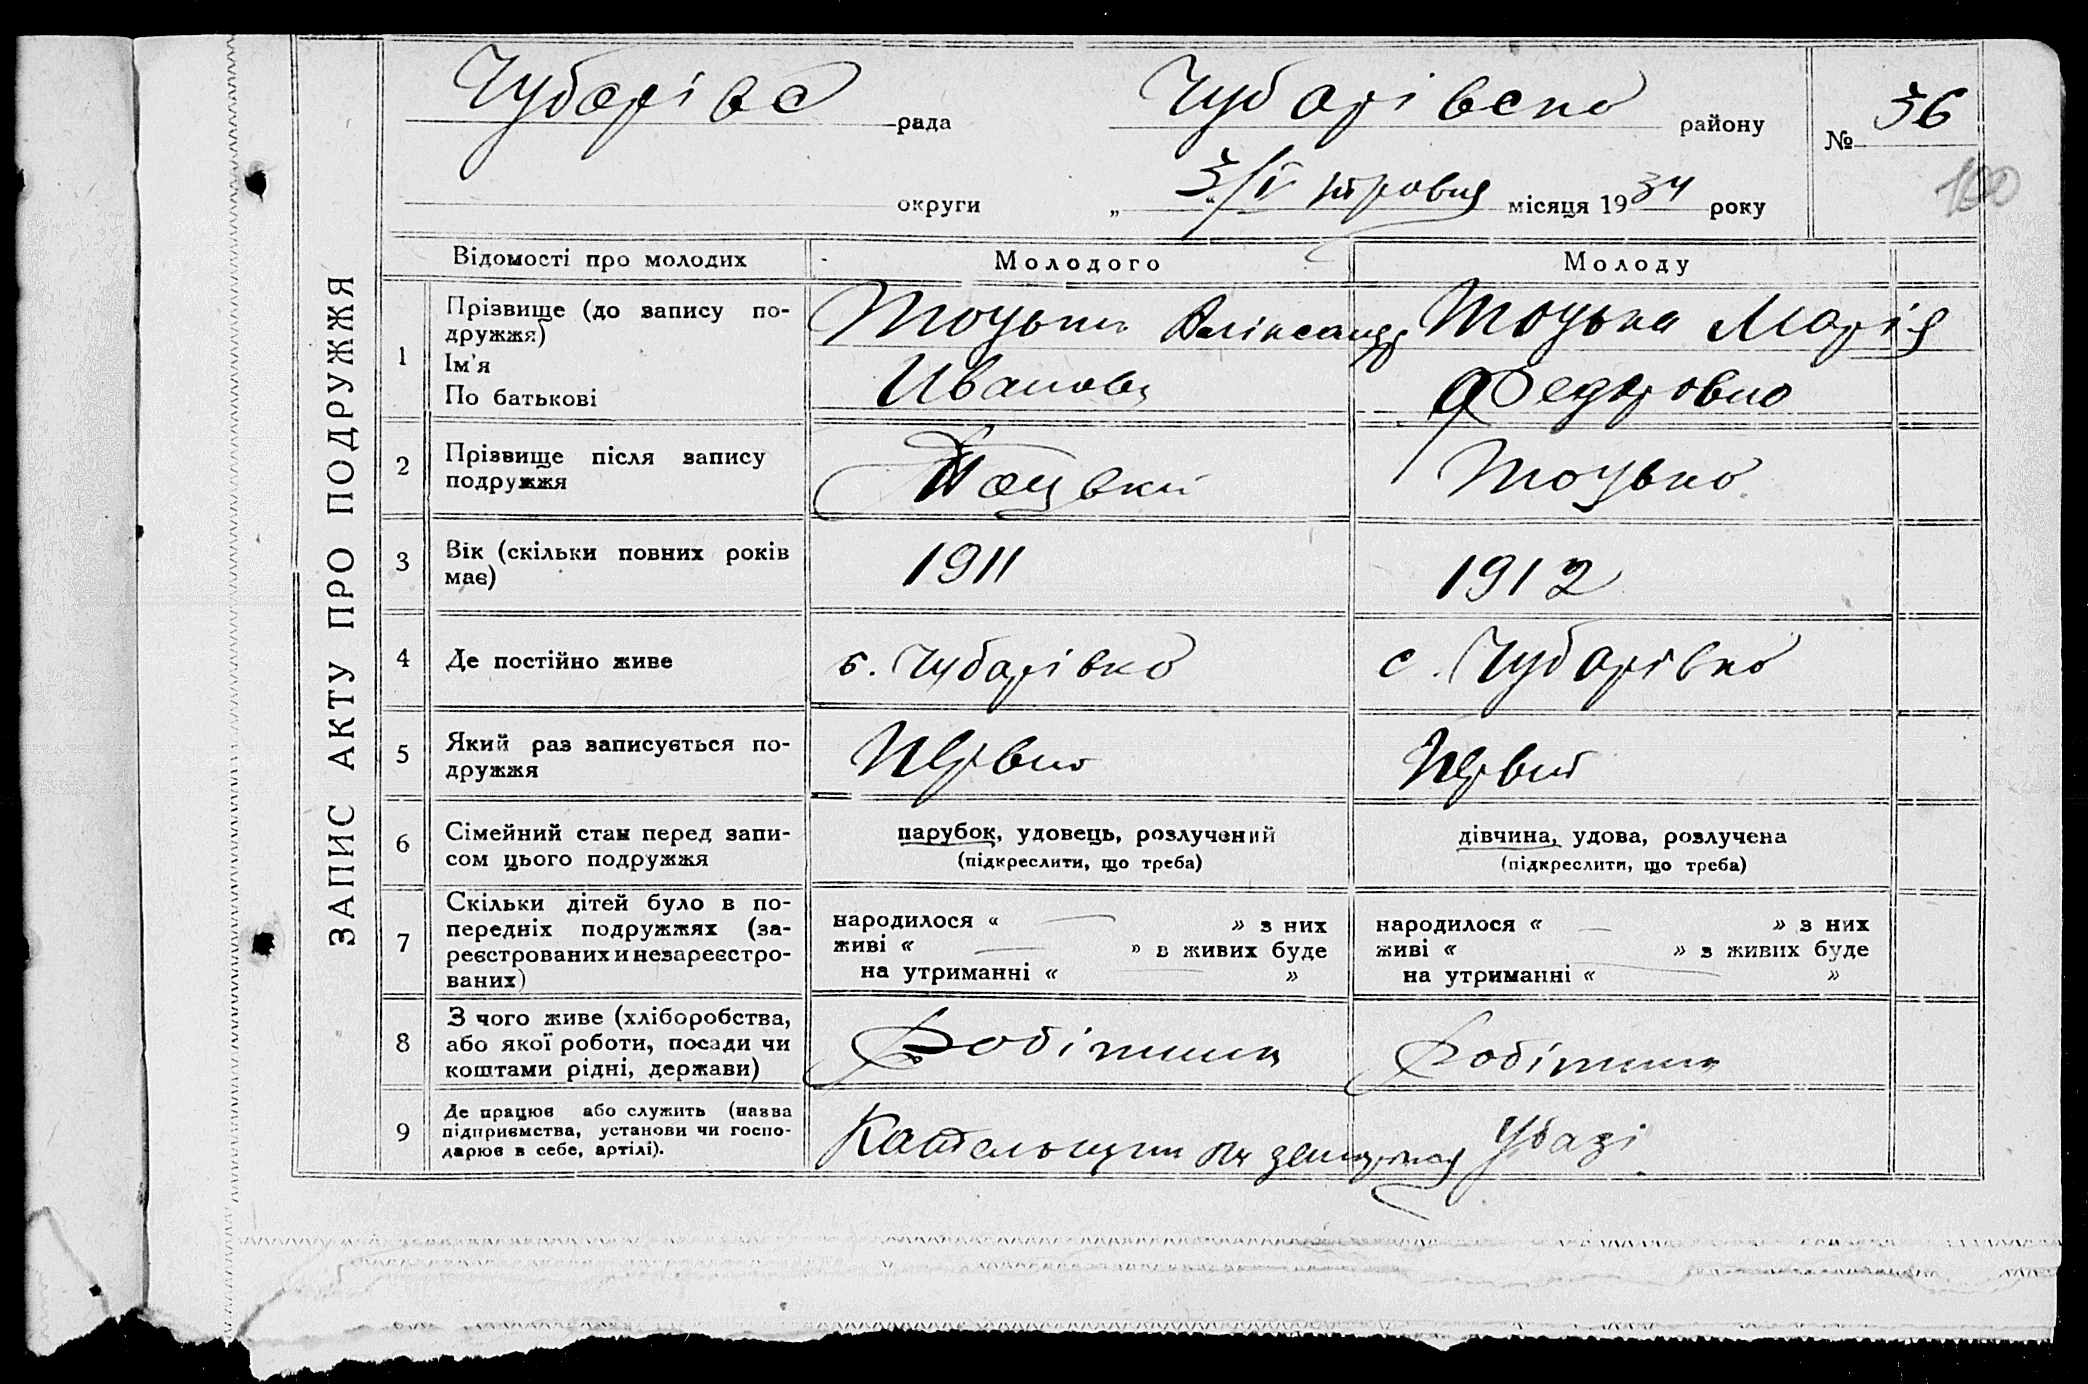 Чубарівс рада Чубарівсно району № 36
100
округи „ 3/V травня місяця 1934 року
ЗАПИС АКТУ ПРО ПОДРУЖЖЯ
Відомості про молодих Молодого Молоду
1 Прізвище (до запису по-
дружжя)
Ім'я
По батькові
Тоцький Алінсандр
Иванови
Тоцька Марія
Федоровно
2 Прізвище після запису
подружжя
Тоцькій
Тоцько
3 Вік (скільки повних років
має)
1911
1912
4 Де постійно живе
с. Чубарівко
с. Чубарівко
5 Який раз записується по-
дружжя
Первий
Первий
6 Сімейний стан перед запи-
сом цього подружжя
парубок, удовець, розлучений
(підкреслити, що треба)
дівчина, удова, розлучена
(підкреслити, що треба)
7 Скільки дітей було в по-
передніх подружжях (за-
реєстрованих и незареєстро-
ваних)
народилося « — » з них
живі « — » в живих буде
на утриманні « — »
народилося « — » з них
живі « — » з живих буде
на утриманні « — »
8 З чого живе (хліборобства,
або якої роботи, посади чи
коштами рідні, держави)
Робітник
Робітник
9 Де працює або служить (назва
підприємства, установи чи госпо-
дарює в себе, артілі).